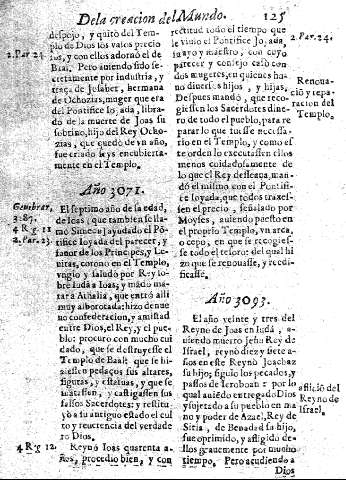 De la creacion del Mundo. 125
despojo, y quitó del Tem-
plo de Dios los vasos precio
sos, y con ellos adornó el de
Baal, Pero auiendo sido se-
cretamente por industria, y
traça de Josaber, hermana
de Ochozias, muger que era
del Pontifice Joiada, libra-
do de la muerte de Joas su
sobrino, hijo del Rey Ocho-
zias, que quedó de vn año,
fue criado seys encubierta-
mente en el Templo.
2. Par. 24.
Año 3071.
El septimo año de la edad,
de Ioas, que tambien se lla-
mò Simeon, ayudado el Põ-
tifice Ioyada del parecer, y
fauor de los Principes, y Le-
uitas, coronò en el Templo,
vngio y saludò por Rey so-
bre Iudà a Ioas, y mãdo ma-
tar a Athalia, que entrò alli
muy alborotada: hizo de nue
uo confederacion, y amistad
entre Dios, el Rey, y el pue-
blo: procurò con mucho cui
dado, que se destruyesse el
Templo de Baal: que se hi-
ziessen pedaços sus altares,
figuras, y estatuas, y que se
matassen, y castigassen sus
falsos Sacerdotes: y restitu-
yò a su antiguo estado el cul
to y reuerencia del verdade
ro Dios.
Reynò Ioas quarenta a-
ños, procedio bien, y con
Genebrar.
387.
4 Rg 11
2. Par. 23.
4 Rg 12.
rectitud todo el tiempo que
le viuio el Pontifice Joiada,
su ayo y maestro, con cuyo
parecer y consejo casò con
dos mugeres, en quienes hu-
no diuersos hijos, y hijas.
Despues mandò, que reco-
giessen los Sacerdotes dine-
ro de todo el pueblo, para re
parar lo que fuesse necessa-
rio en el Templo, y como es
te orden lo executassen ellos
menos cuidadosamente de
lo que el Rey desseaua, man-
dó el mismo con el Pontifi-
ce Ioyada, que todos traxes-
sen el precio, señalado por
Moyses, auiendo puesto en
el proprio Templo, vn arca,
o cepo, en que se recogies-
se todo el tesoro: del qual hi
zo que se renouasse, y reedi-
ficasse.
2 Par. 24.
Renoua-
ció y repa-
racion del
Templo.
Año 3093.
El año veinte y tres del
Reyno de Ioas en Iudà, a-
uiendo muerto Jehu Rey de
Israel, reynò diez y siete a-
ños en este Reyno Ioachaz
su hijo; siguio los pecados, y
passos de Ieroboan: por lo
qual auiédo entregado Dios
y sujetado a su pueblo en ma
no y poder de Azael, Rey de
Siria, de Benadad su hijo,
fue oprimido, y afligido de-
llos grauemente por mucho
tiempo. Pero acudiendo a
Dios
aflició del
Reyno de
Israel.